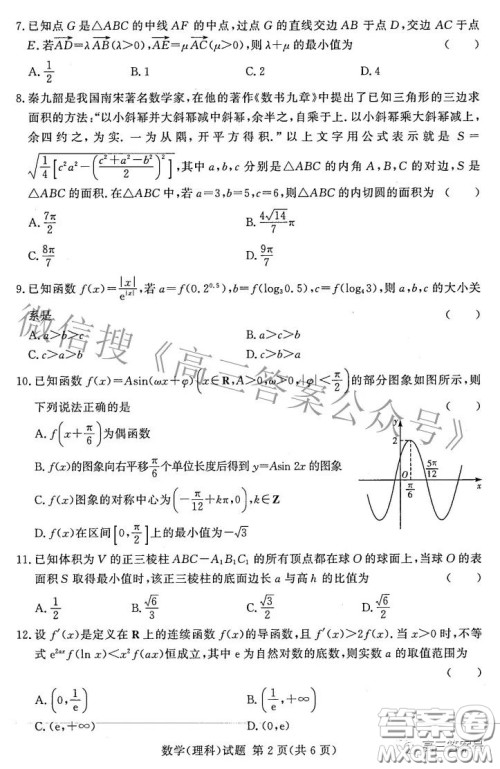 7. 已知点 G 是△ABC 的中线 AF 的中点,过点 G 的直线交边 AB 于点 D,交边 AC 于点
E. 若AD=λAB(λ>0),AE=μAC(μ>0),则 λ+μ 的最小值为 ( )
A. 1/2 B. 1 C. 2 D. 4
8. 秦九韶是我国南宋著名数学家,在他的著作《数书九章》中提出了已知三角形的三边求
面积的方法:“以小斜幂并大斜幂减中斜幂,余半之,自乘于上. 以小斜幂乘大斜幂减上,
余四约之,为实. 一为从隅,开平方得积.”以上文字用公式表示就是 S=
√(1/4[c²a²-((c²+a²-b²)/2)²]),其中 a,b,c 分别是△ABC 的内角 A,B,C 的对边,S 是
△ABC 的面积. 在△ABC 中,若 a=3,b=5,c=6,则△ABC 的内切圆的面积为 ( )
A. 7π/2 B. 4√14/7 π
C. 8π/7 D. 9π/7
9. 已知函数 f(x)=|x|/e^|x|,若 a=f(0.2^0.5),b=f(log₃0.5),c=f(log₄3),则 a,b,c 的大小关
系是 ( )
A. a>b>c B. a>c>b
C. c>a>b
10. 已知函数 f(x)=Asin(ωx+φ)(x∈R,A>0,ω>0,|φ|<π/2)的部分图象如图所示,则
下列说法正确的是 ( )
A. f(x+π/6)为偶函数
B. f(x)的图象向右平移π/6个单位长度后得到 y=Asin 2x 的图象
C. f(x)图象的对称中心为(-π/12+kπ,0),k∈Z
D. f(x)在区间[0,π/2]上的最小值为-√3
y
2
O
π/6
5π/12
x
11. 已知体积为 V 的正三棱柱 ABC-A₁B₁C₁ 的所有顶点都在球 O 的球面上,当球 O 的表
面积 S 取得最小值时,该正三棱柱的底面边长 a 与高 h 的比值为 ( )
A. 1/2 B. √6/3 C. √3/2 D. √6/2
12. 设 f′(x)是定义在 R 上的连续函数 f(x)的导函数,且 f′(x)>2f(x). 当 x>0 时,不等
式 e^2ax f(ln x)<x² f(ax)恒成立,其中 e 为自然对数的底数,则实数 a 的取值范围为
( )
A. (0,1/e) B. (1/e,+∞)
C. (e,+∞)
数学(理科)试题 第 2 页(共 6 页)
微信搜《高三答案公众号》
答案圈
MXQE.COM